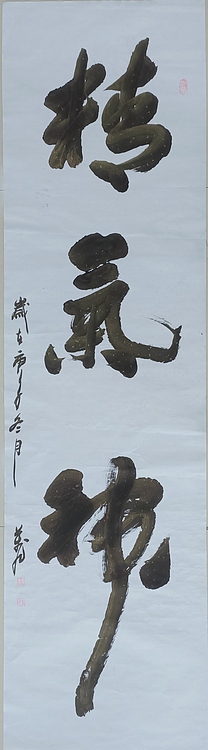 精氣神
歲在庚子冬月